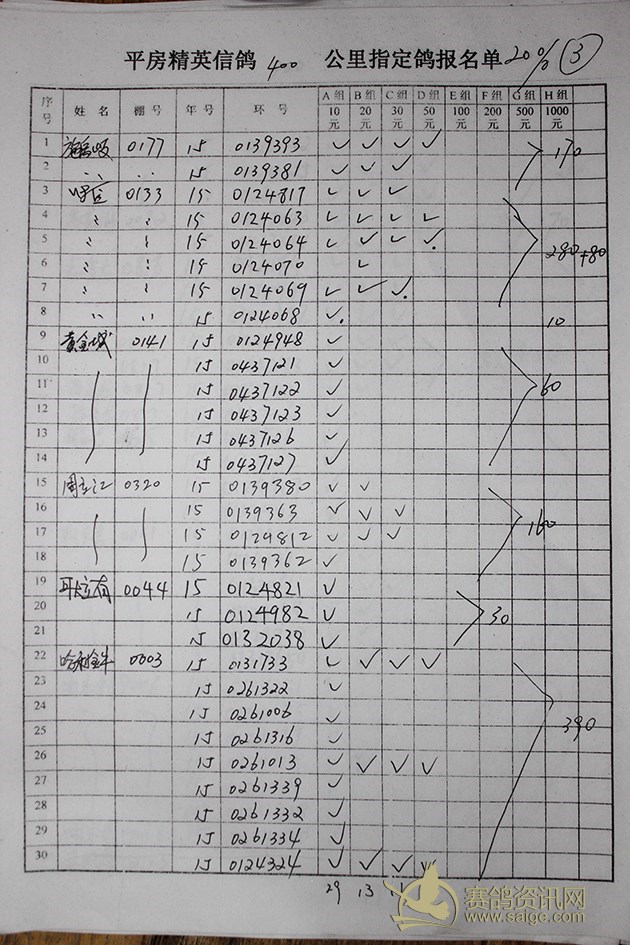 平房精英信鸽 400 公里指定鸽报名单 20% ③
序号 姓名 棚号 年号 环号 A组10元 B组20元 C组30元 D组50元 E组100元 F组200元 G组500元 H组1000元
1 0177 15 0139393 ✓ ✓ ✓ ✓ 170
2 〃 〃 15 0139381 ✓ ✓ ✓
3 0133 15 0124817 ✓ ✓ ✓
4 〃 〃 15 0124063 ✓ ✓ ✓ ✓
5 〃 〃 15 0124064 ✓ ✓ ✓ ✓ 280+80
6 〃 〃 15 0124070 ✓
7 〃 〃 15 0124069 ✓ ✓ ✓
8 〃 〃 15 0124068 ✓ 10
9 黄金城 0141 15 0124948 ✓
10 15 0437121 ✓
11 15 0437122 ✓ 60
12 15 0437123 ✓
13 15 0437126 ✓
14 15 0437127 ✓
15 周立江 0320 15 0139380 ✓ ✓
16 15 0139363 ✓ ✓ ✓
17 15 0129812 ✓ ✓ ✓ 160
18 15 0139362 ✓
19 0044 15 0124821 ✓
20 15 0124982 ✓ 30
21 15 0132038 ✓
22 0003 15 0131733 ✓ ✓ ✓ ✓
23 15 0261322 ✓
24 15 0261006 ✓
25 15 0261316 ✓ 390
26 15 0261013 ✓ ✓ ✓ ✓
27 15 0261339 ✓
28 15 0261332 ✓
29 15 0261334 ✓
30 15 0124324 ✓ ✓ ✓ ✓
29 13
赛鸽资讯网
www.saige.com